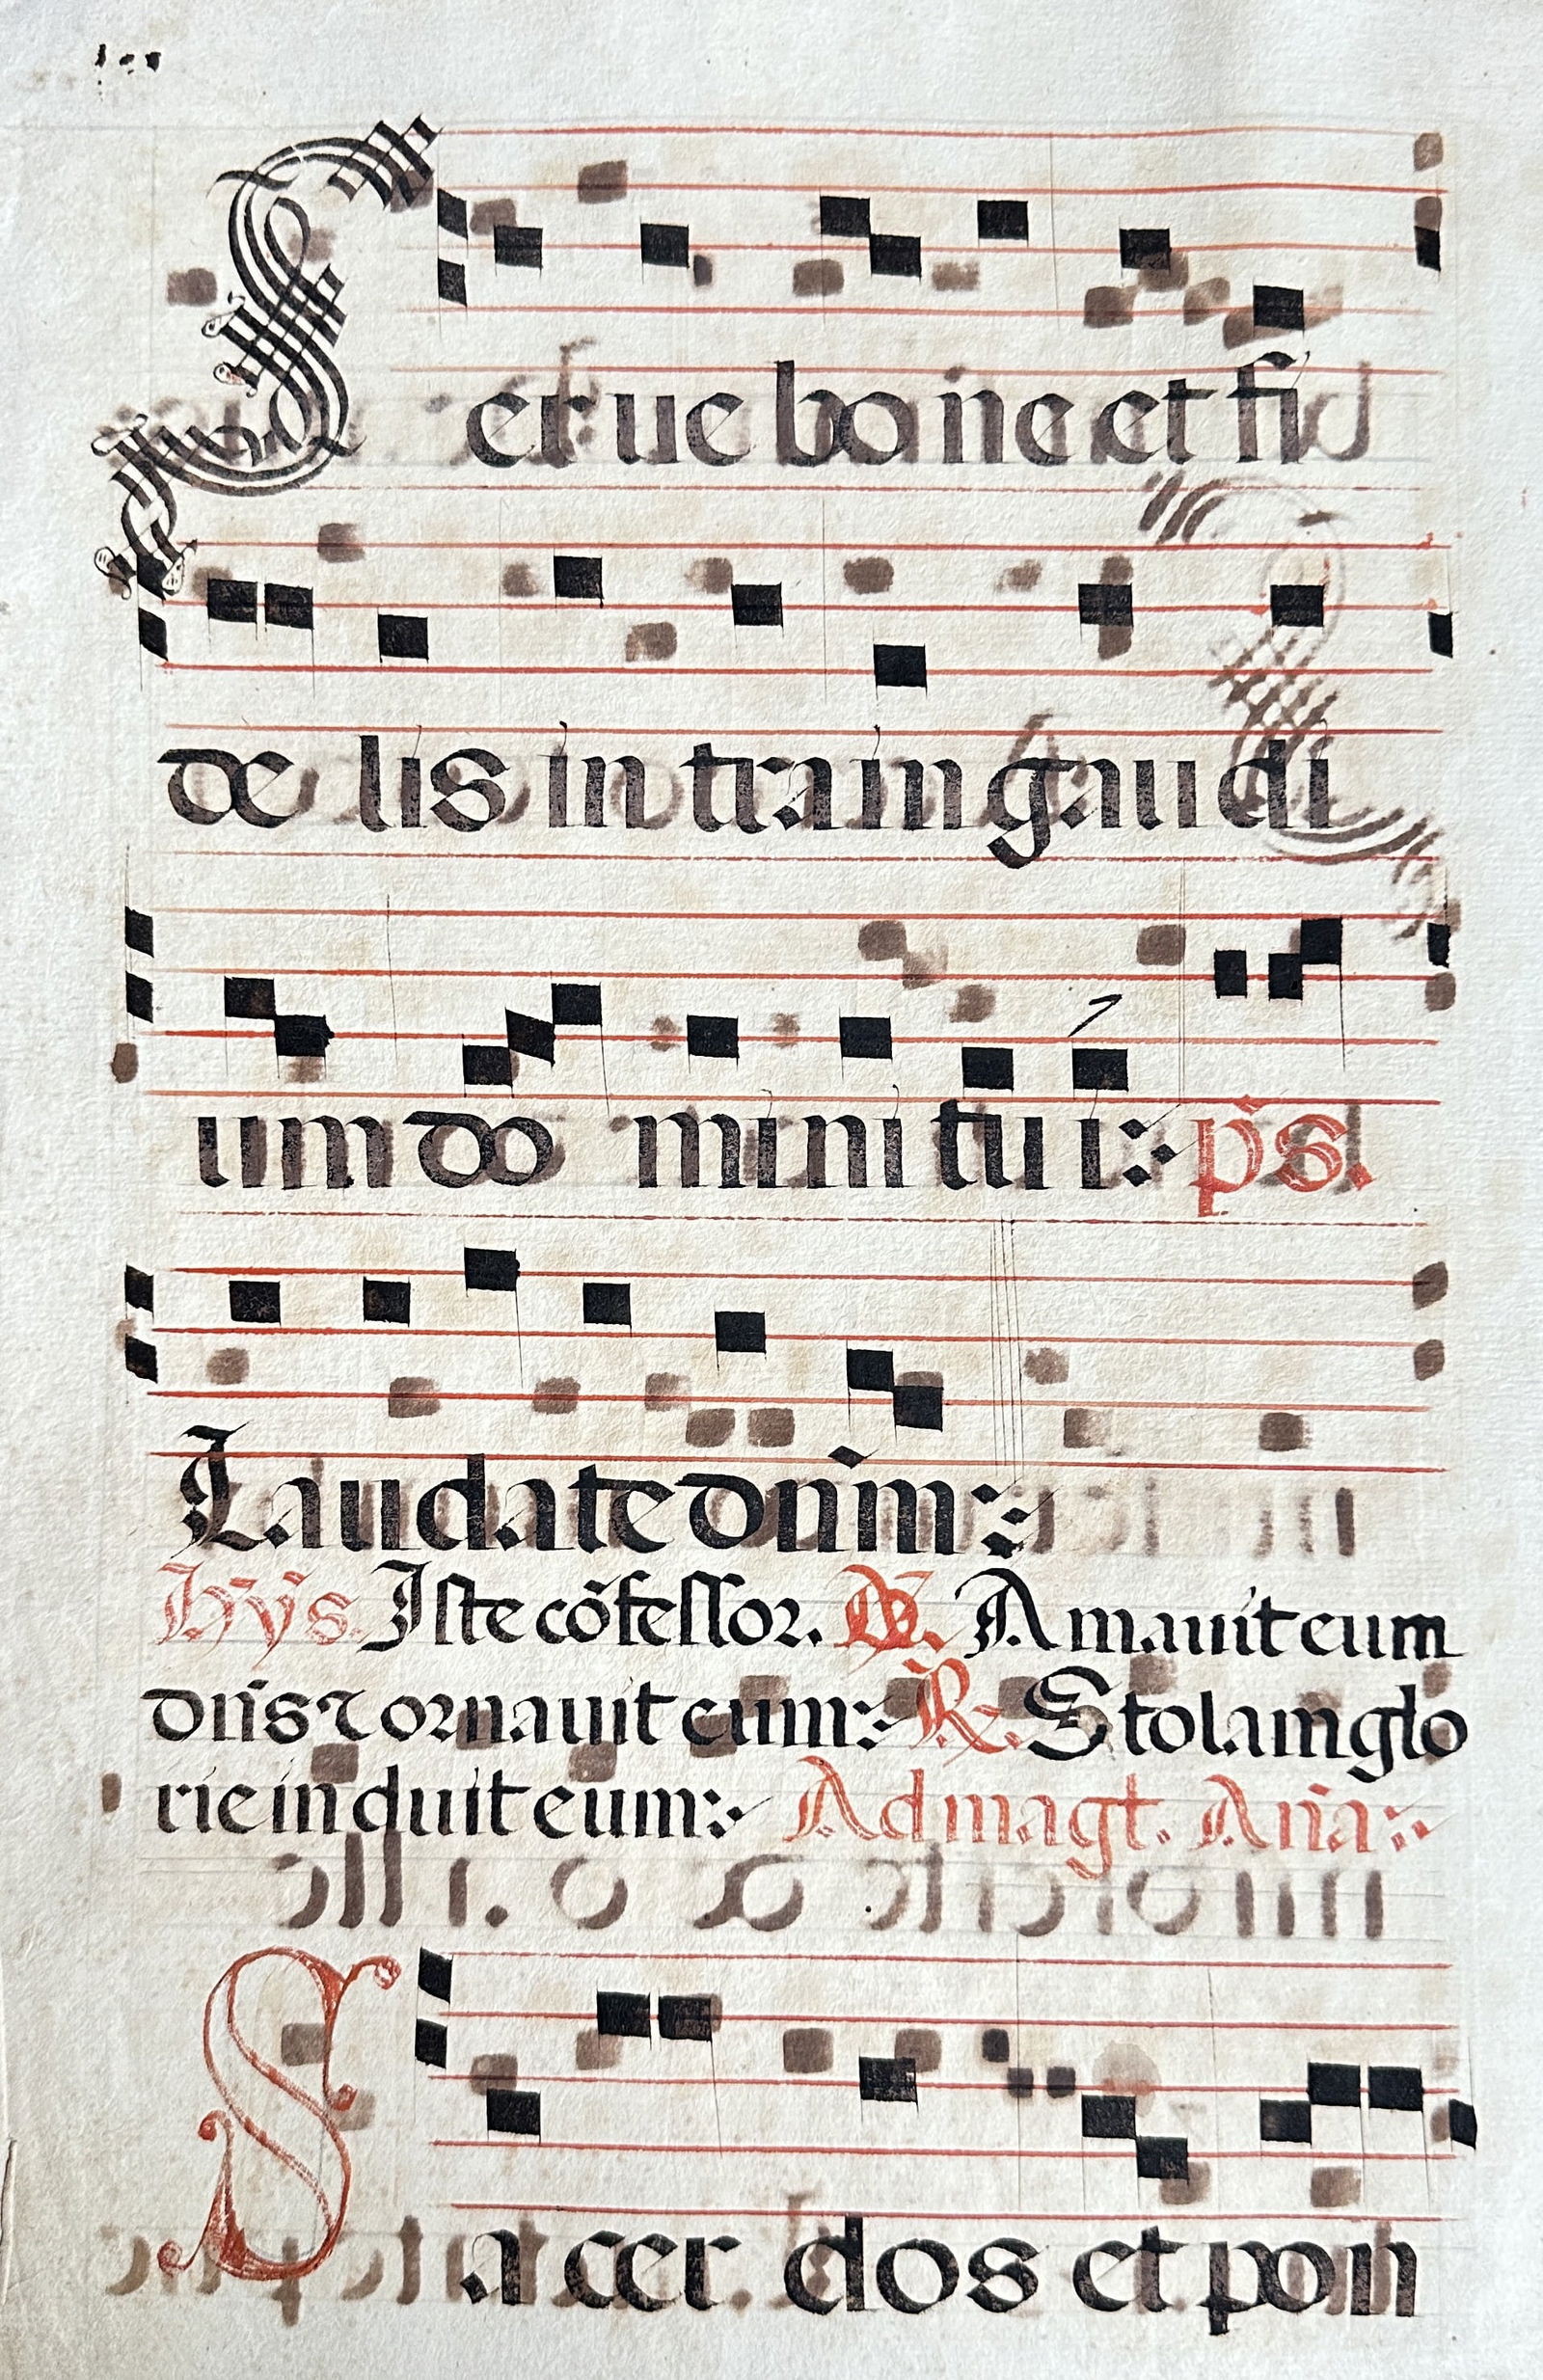 Serue bone et fi
delis intra in gaudi
um domini tui: p̄s.
Laudate dn̄m:
Hȳs. Iste cōfessor. V̄. Amauit eum
dn̄s ⁊ ornauit eum: R̄. Stolam glo
rie induit eum: Ad magt. An̄a:
Sacerdos et pon